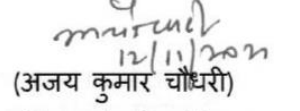 12/11/2021
(अजय कुमार चौधरी)